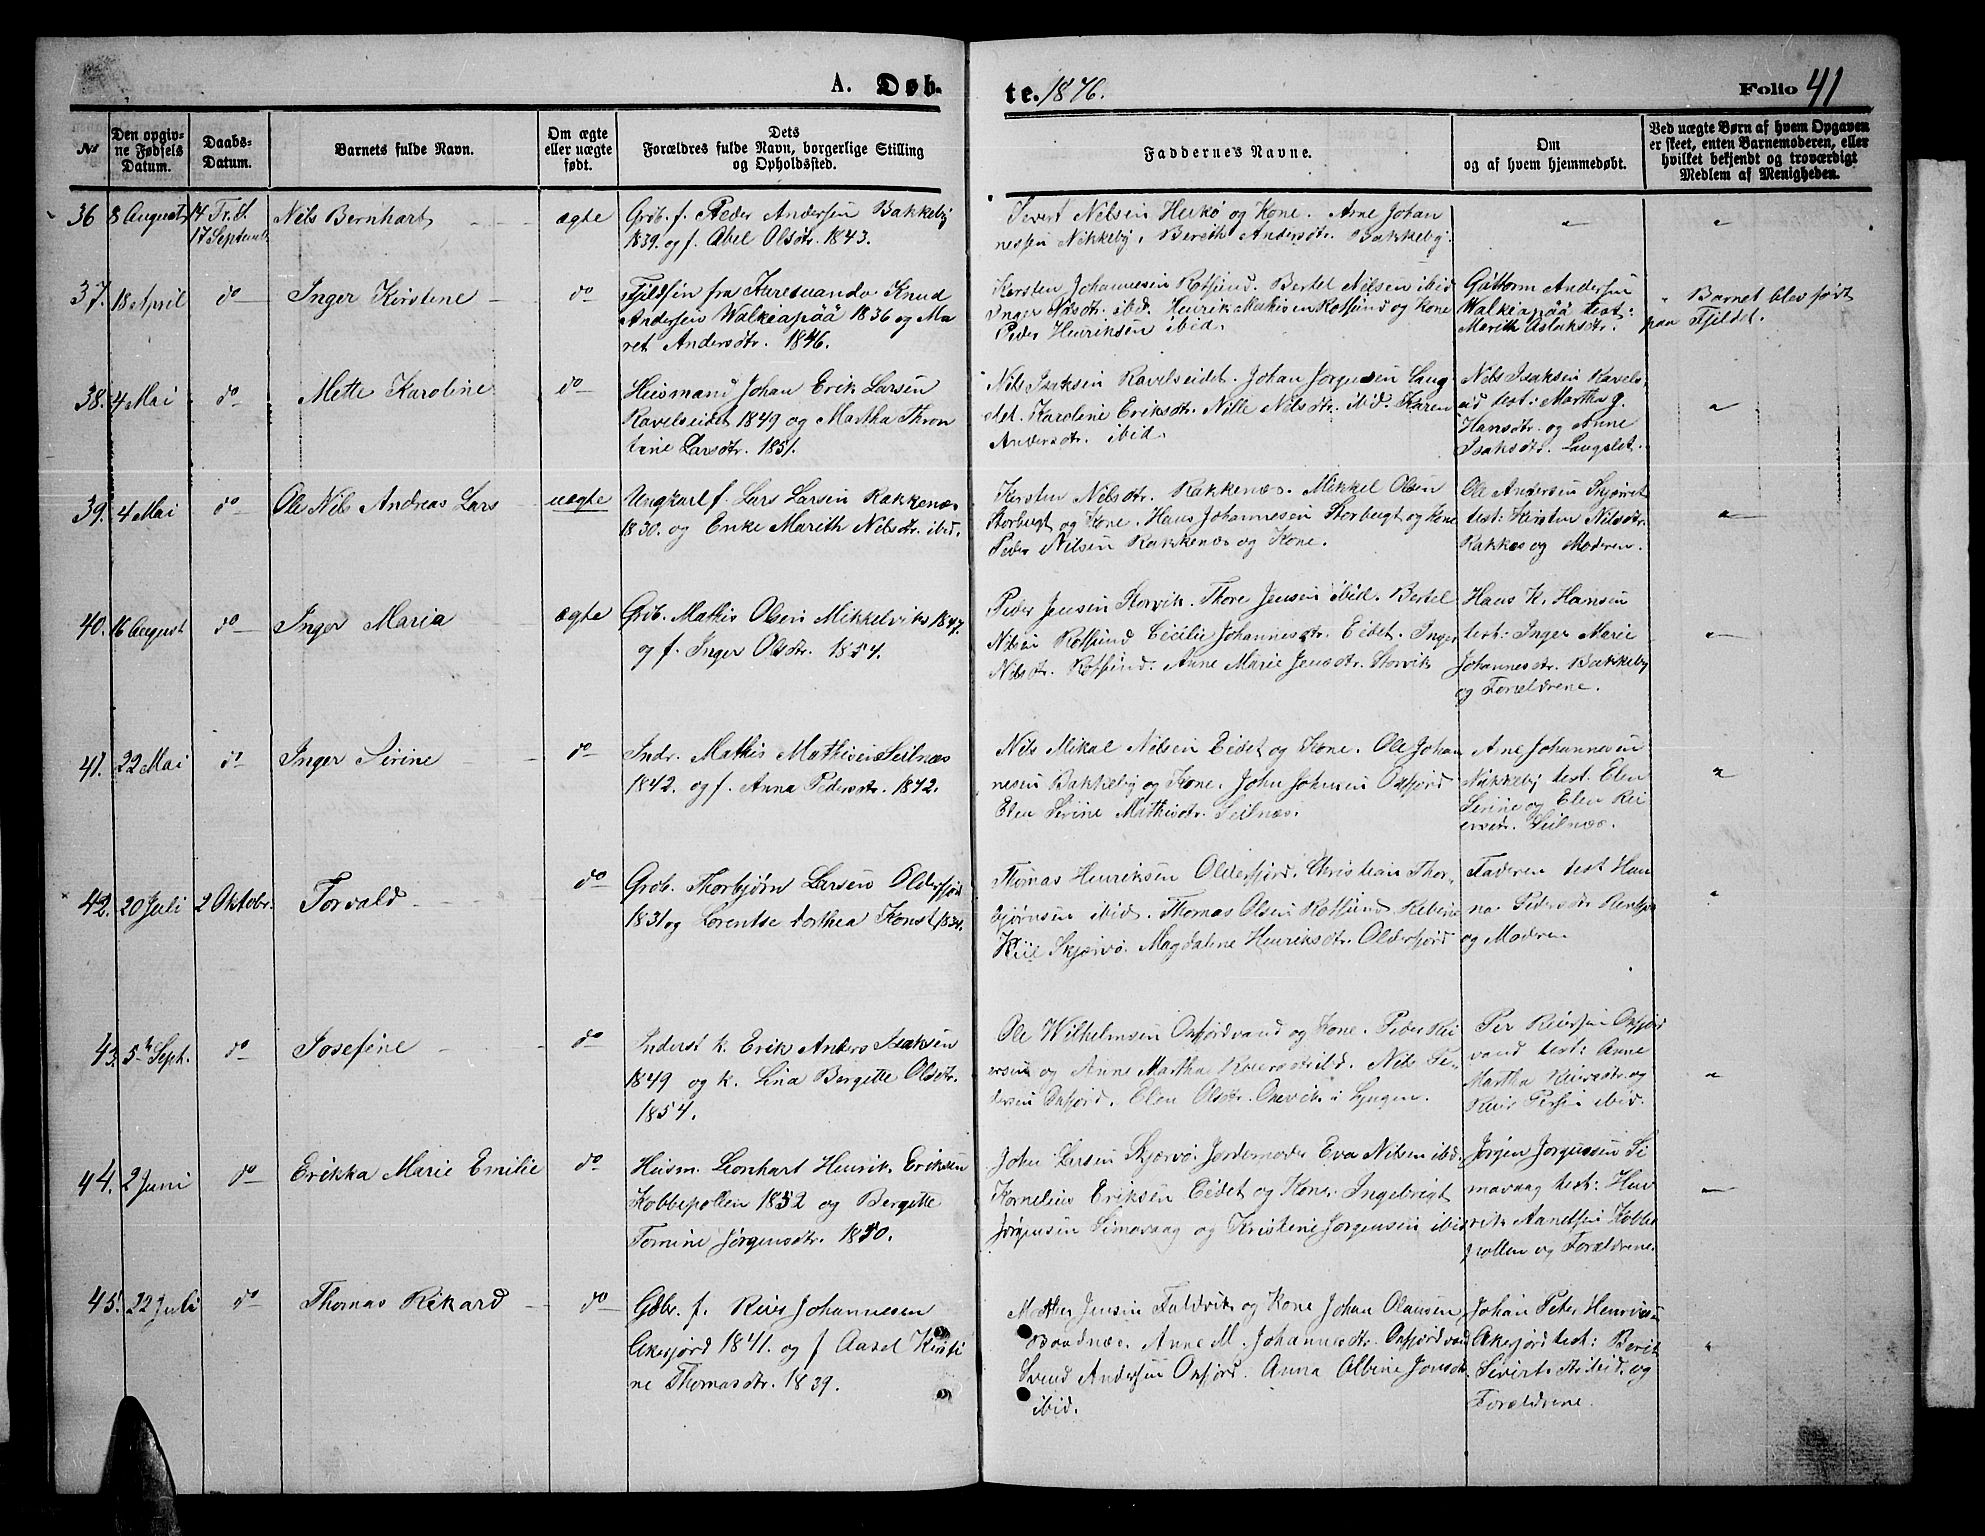 A. Døb-
te. 1876.
Folio 41
No
Den opgiv-
ne Fødsels
Datum.
Daabs-
Datum.
Barnets fulde Navn.
Om ægte
eller uægte
født.
Dets
Forældres fulde Navn, borgerlige Stilling
og Opholdssted.
Faddernes Navne.
Om
og af hvem hjemmedøbt.
Ved uægte Børn af hvem Opgaven
er skeet, enten Barnemoderen, eller
hvilket bekjendt og troværdigt
Medlem af Menigheden.
36 8 August 14 Tr. S.
17 Septemb.
Nils Bernhart
ægte
Grb. f. Peder Andersen Bakkeby
1839. og f. Abel Olsdtr. 1843.
Sivert Nilsen Heikø og Kone. Arne Johan
nessen Nikkeby, Berith Andersdtr. Bakkeby.
"
"
37. 18 April do
Inger Kirstine
do
Fjeldfin fra Karesuando Knud
Andersen Walkeapää 1836 og Ma
ret Andersdtr. 1846.
Kersten Johannesen Rotsund. Bertel Nilsen ibid
Inger Nilsdtr. ibid. Henrik Mathisen Rotsund og Kone
Peder Henriksen ibid.
Guttorm Andersen
Walkeapää test:
Marith Aslaksdtr.
Barnet blev født
paa Fjeldet.
38. 4 Mai do
Mette Karoline
do
Huusmand Johan Erik Larsen
Ravelseidet 1849 og Martha Thron
tine Larsdtr. 1851.
Nils Isaksen Ravelseidet. Johan Jørgensen Laug
slet. Karoline Eriksdtr. Nille Nilsdtr. ibid. Karen
Andersdtr. ibid.
Nils Isaksen Ravels-
eid test: Martha J.
Hansdtr. og Anne
Isaksdtr. Laugslet.
"
39. 4 Mai do
Ole Nils Andreas Lars
uægte
Ungkarl f. Lars Larsen Rakkenæs
1830. og Enke Marith Nilsdtr. ibid.
Kirsten Nilsdtr. Rakkenæs. Mikkel Olsen
Storbugt og Kone. Hans Johannesen Storbugt og Kone
Peder Nilsen Rakkenæs og Kone.
Ole Andersen Skjøret
test: Kirsten Nilsdtr.
Rakkes og Moderen.
"
40. 16 August do
Inger Maria
ægte
Grb. Mathis Olsen Mikkelvik 1847.
og f. Inger Olsdtr. 1854.
Peder Jensen Storvik. Thore Jensen ibid. Bertel
Nilsen Rotsund Cicilie Johannesdtr. Eidet. Inger
Nilsdtr. Rotsund. Anne Marie Jensdtr. Storvik
Hans K. Hansen
test: Inger Marie
Johannesdtr. Bakkeby
og Forældrene.
"
41. 22 Mai do
Inger Sirine
do
Indr. Mathis Mathisen Seilnæs
1842. og f. Anna Pedersdtr. 1842.
Nils Mikal Nilsen Eidet og Kone. Ole Johan
nesen Bakkeby og Kone. John Johnsen Oxfjord
Elen Serine Mathisdtr. Seilnæs.
Arne Johannesen
Nikkeby test. Elen
Sirine og Elen Rei
ersdtr. Seilnæs.
"
42. 20 Juli 2 Oktobr.
Torvald
do
Grb. Thorbjørn Larsen Olderfjord
1831 og Lorentse Dorthea Konst. 1834.
Thomas Henriksen Olderfjord. Christian Thor-
bjørnsen ibid. Thomas Olsen Rotsund.
Kiil Skjærvø. Magdaline Henriksdtr. Olderfjord
Faderen test Han
na Pedersdtr
og Moderen
"
43. 5te Sept. do
Josefine
do
Inderst k. Erik Anders Isaksen
1849 og k. Lina Bergitte Olsdtr.
1854.
Ole Wilhelmsen Oxfjordvand og Kone. Peder Rei
ersen og Anne Martha Reiersdtr ibid. Nils Pe-
dersen Oxfjord. Elen Olsdtr. i Lyngen.
Per Reiersen Oxfjord
vand test: Anne
Martha Reiersdtr. og
Reier Persen ibid.
"
44. 2 Juni do
Erikka Marie Emilie
do
Huusm. Leonhart Henrik Eriksen
Kobbepollen 1852 og Bergitte
Tomine Jørgensdtr. 1850.
John Larsen Skjærvø. Jordemoder Eva Nilsen ibid.
Kornelius Eriksen Eidet og Kone. Ingebrigt
Jørgensen Simavaag og Kristine Jørgensen ibid
Jørgen Jørgensen Si
mavaag test: Hen
rik Kobbe
pollen og Forældrene.
"
45. 22 Juli do
Thomas Rikard
do
Gdbr. f. Reier Johannesen
Akefjord 1841. og f Aasel Kirsti
ne Thomasdtr. 1839.
Jensen og Kone Johan Olausen
Baadnæs. Anne M. Johannesdtr. Oxfjordvand
Svend Andersen Oxfjord. Anna Albine Jonsdtr.
ibid.
Johan Peter Henriksen
Akefjord test: Berit
Sivertsdtr. ibid. og
Forældrene.
"